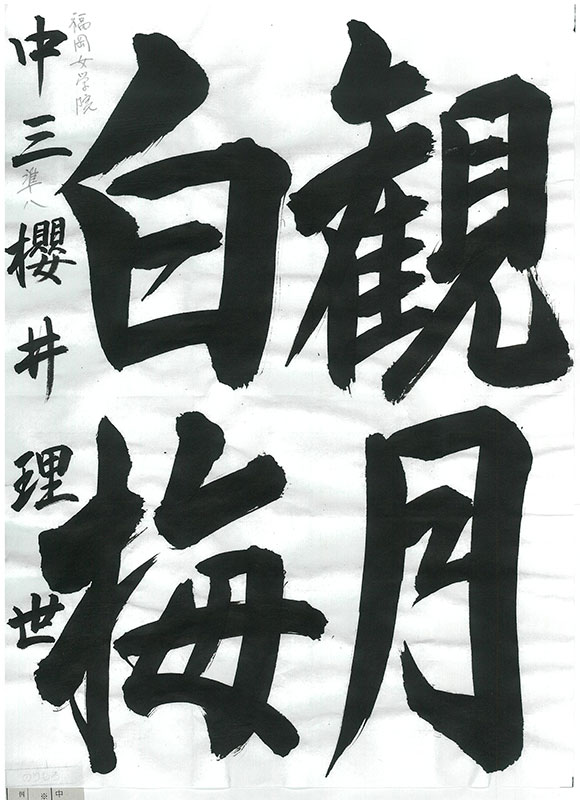 観月
白梅
福岡女学院
中三 準八 櫻井理世
中
※
例